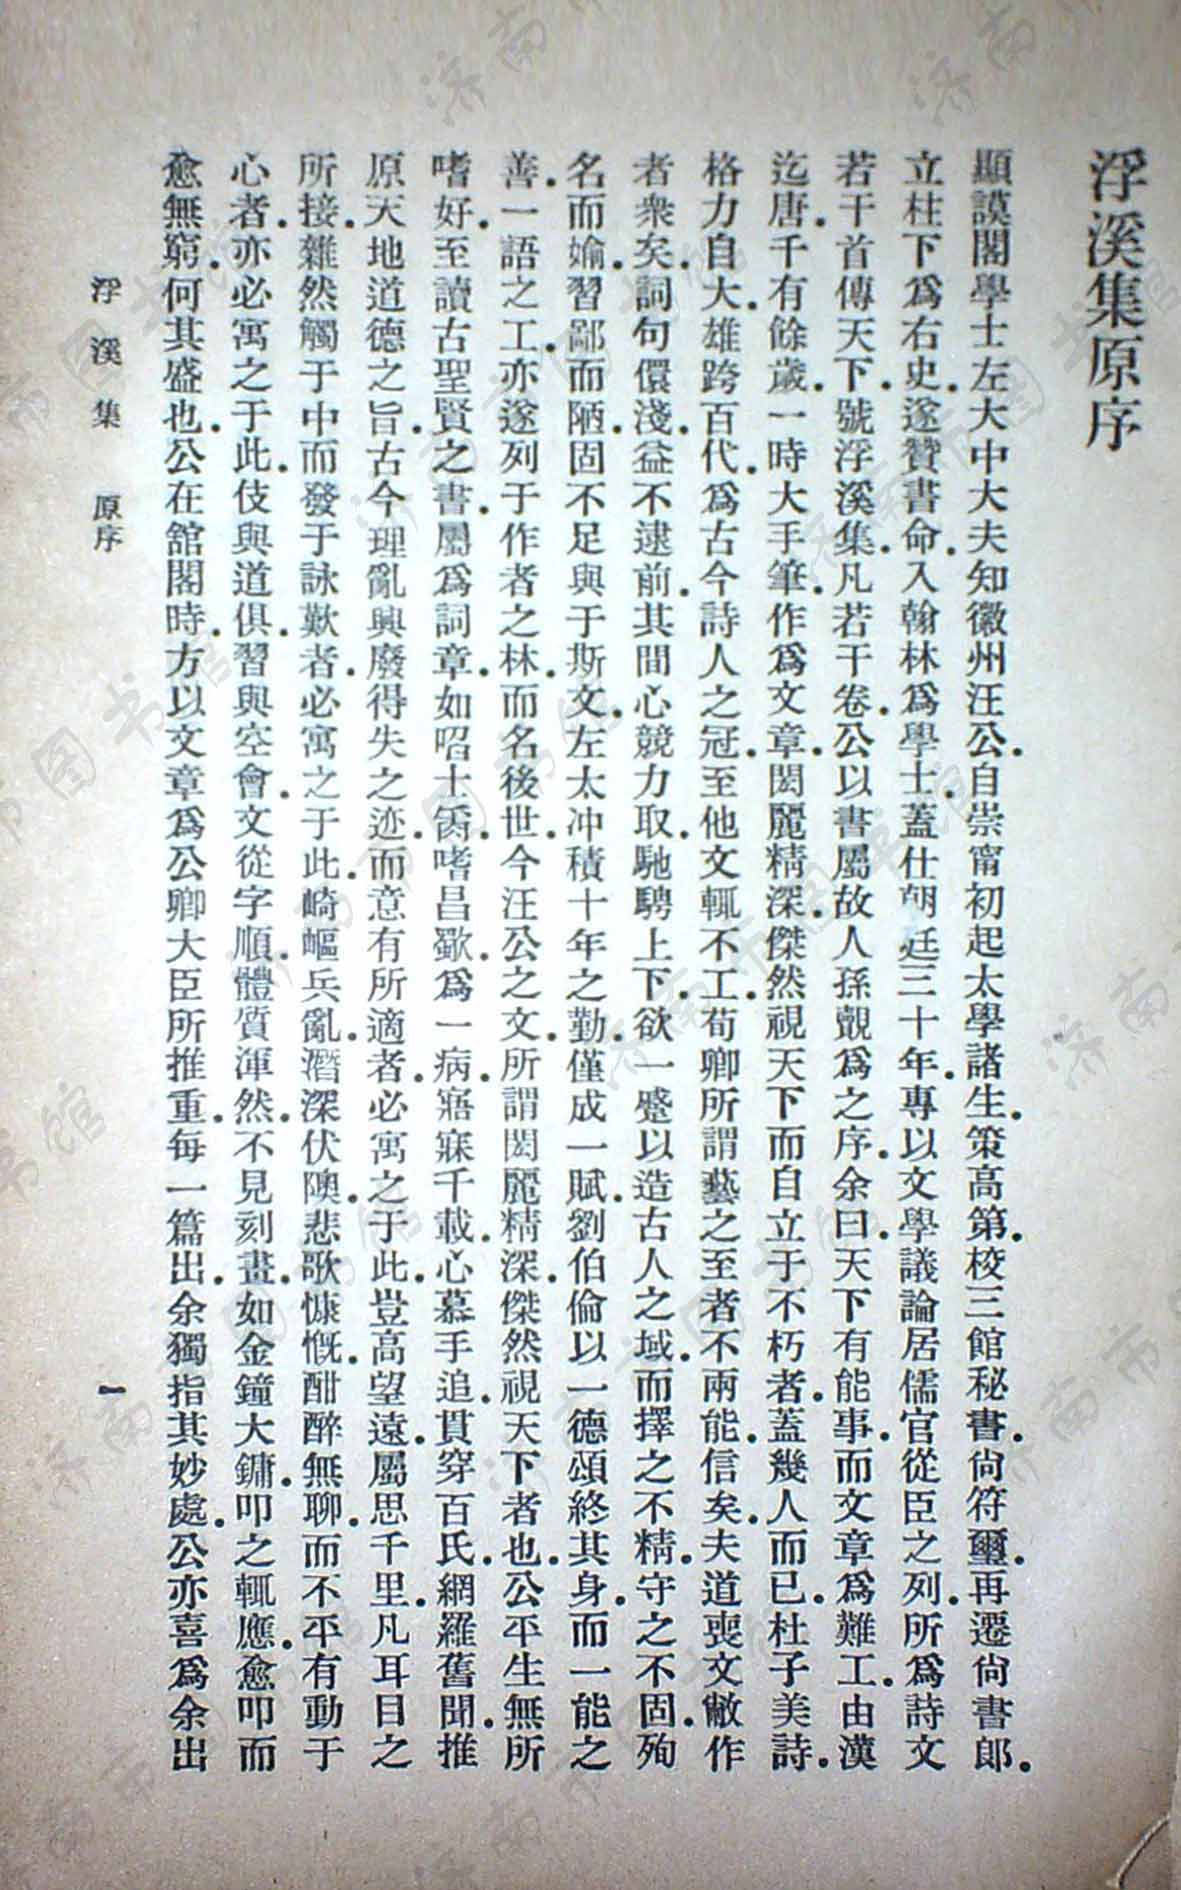 浮溪集原序
顯謨閣學士左大中大夫知徽州汪公。自崇甯初起太學諸生。策高第。校三館秘書。尙符璽。再遷尙書郎。
立柱下爲右史。遂贊書命。入翰林爲學士。蓋仕朝廷三十年。專以文學議論居儒官從臣之列。所爲詩文
若干首傳天下。號浮溪集。凡若干卷。公以書屬故人孫覿爲之序。余曰。天下有能事。而文章爲難工。由漢
迄唐。千有餘歲。一時大手筆。作爲文章。閎麗精深。傑然視天下而自立于不朽者。蓋幾人而已。杜子美詩。
格力自大。雄跨百代。爲古今詩人之冠。至他文輒不工。荀卿所謂藝之至者不兩能。信矣。夫道喪文敝。作
者衆矣。詞句儇淺。益不逮前。其間心競力取。馳騁上下。欲一蹙以造古人之域。而擇之不精。守之不固。殉
名而媮。習鄙而陋。固不足與于斯文。左太冲積十年之勤。僅成一賦。劉伯倫以一德頌終其身。而一能之
善。一語之工。亦遂列于作者之林。而名後世。今汪公之文。所謂閎麗精深。傑然視天下者也。公平生無所
嗜好。至讀古聖賢之書。屬爲詞章。如啗土炭。嗜昌歜。爲一病。寤寐千載。心慕手追。貫穿百氏。網羅舊聞。推
原天地道德之旨。古今理亂興廢得失之迹。而意有所適者。必寓之于此。豈高望遠。屬思千里。凡耳目之
所接。雜然觸于中而發于詠歎者。必寓之于此。崎嶇兵亂。潛深伏隩。悲歌慷慨。酣醉無聊。而不平有動于
心者。亦必寓之于此。伎與道俱。習與空會。文從字順。體質渾然。不見刻畫。如金鐘大鏞。叩之輒應。愈叩而
愈無窮。何其盛也。公在舘閣時。方以文章爲公卿大臣所推重。每一篇出。余獨指其妙處。公亦喜爲余出
浮溪集 原序
一
济南市图书馆